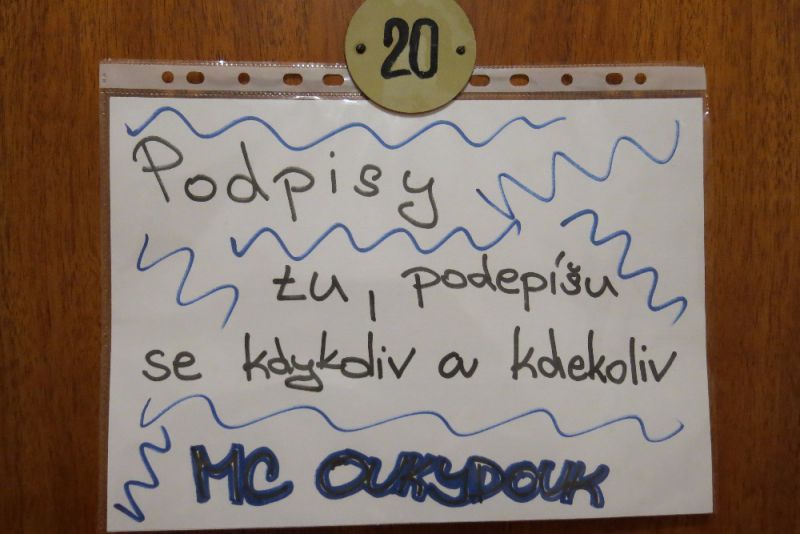 20
Podpisy
tu, podepíšu
se kdykoliv a kdekoliv
MC OUKYDOUK